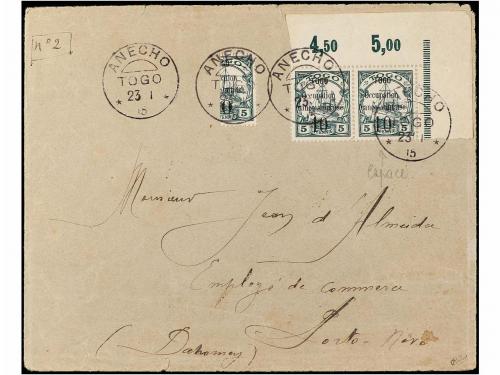 n°2
4,50 5,00
ANECHO
TOGO
23 1
15
ANECHO
ANECHO
TOGO
23 1
15
TOGO
Occupation
franco-anglaise
5 10 5
TOGO
Occupation
franco-anglaise
5 10 5
espace
Monsieur Jean d'Almeida
Employé de commerce
Porto-Novo
(Dahomey)